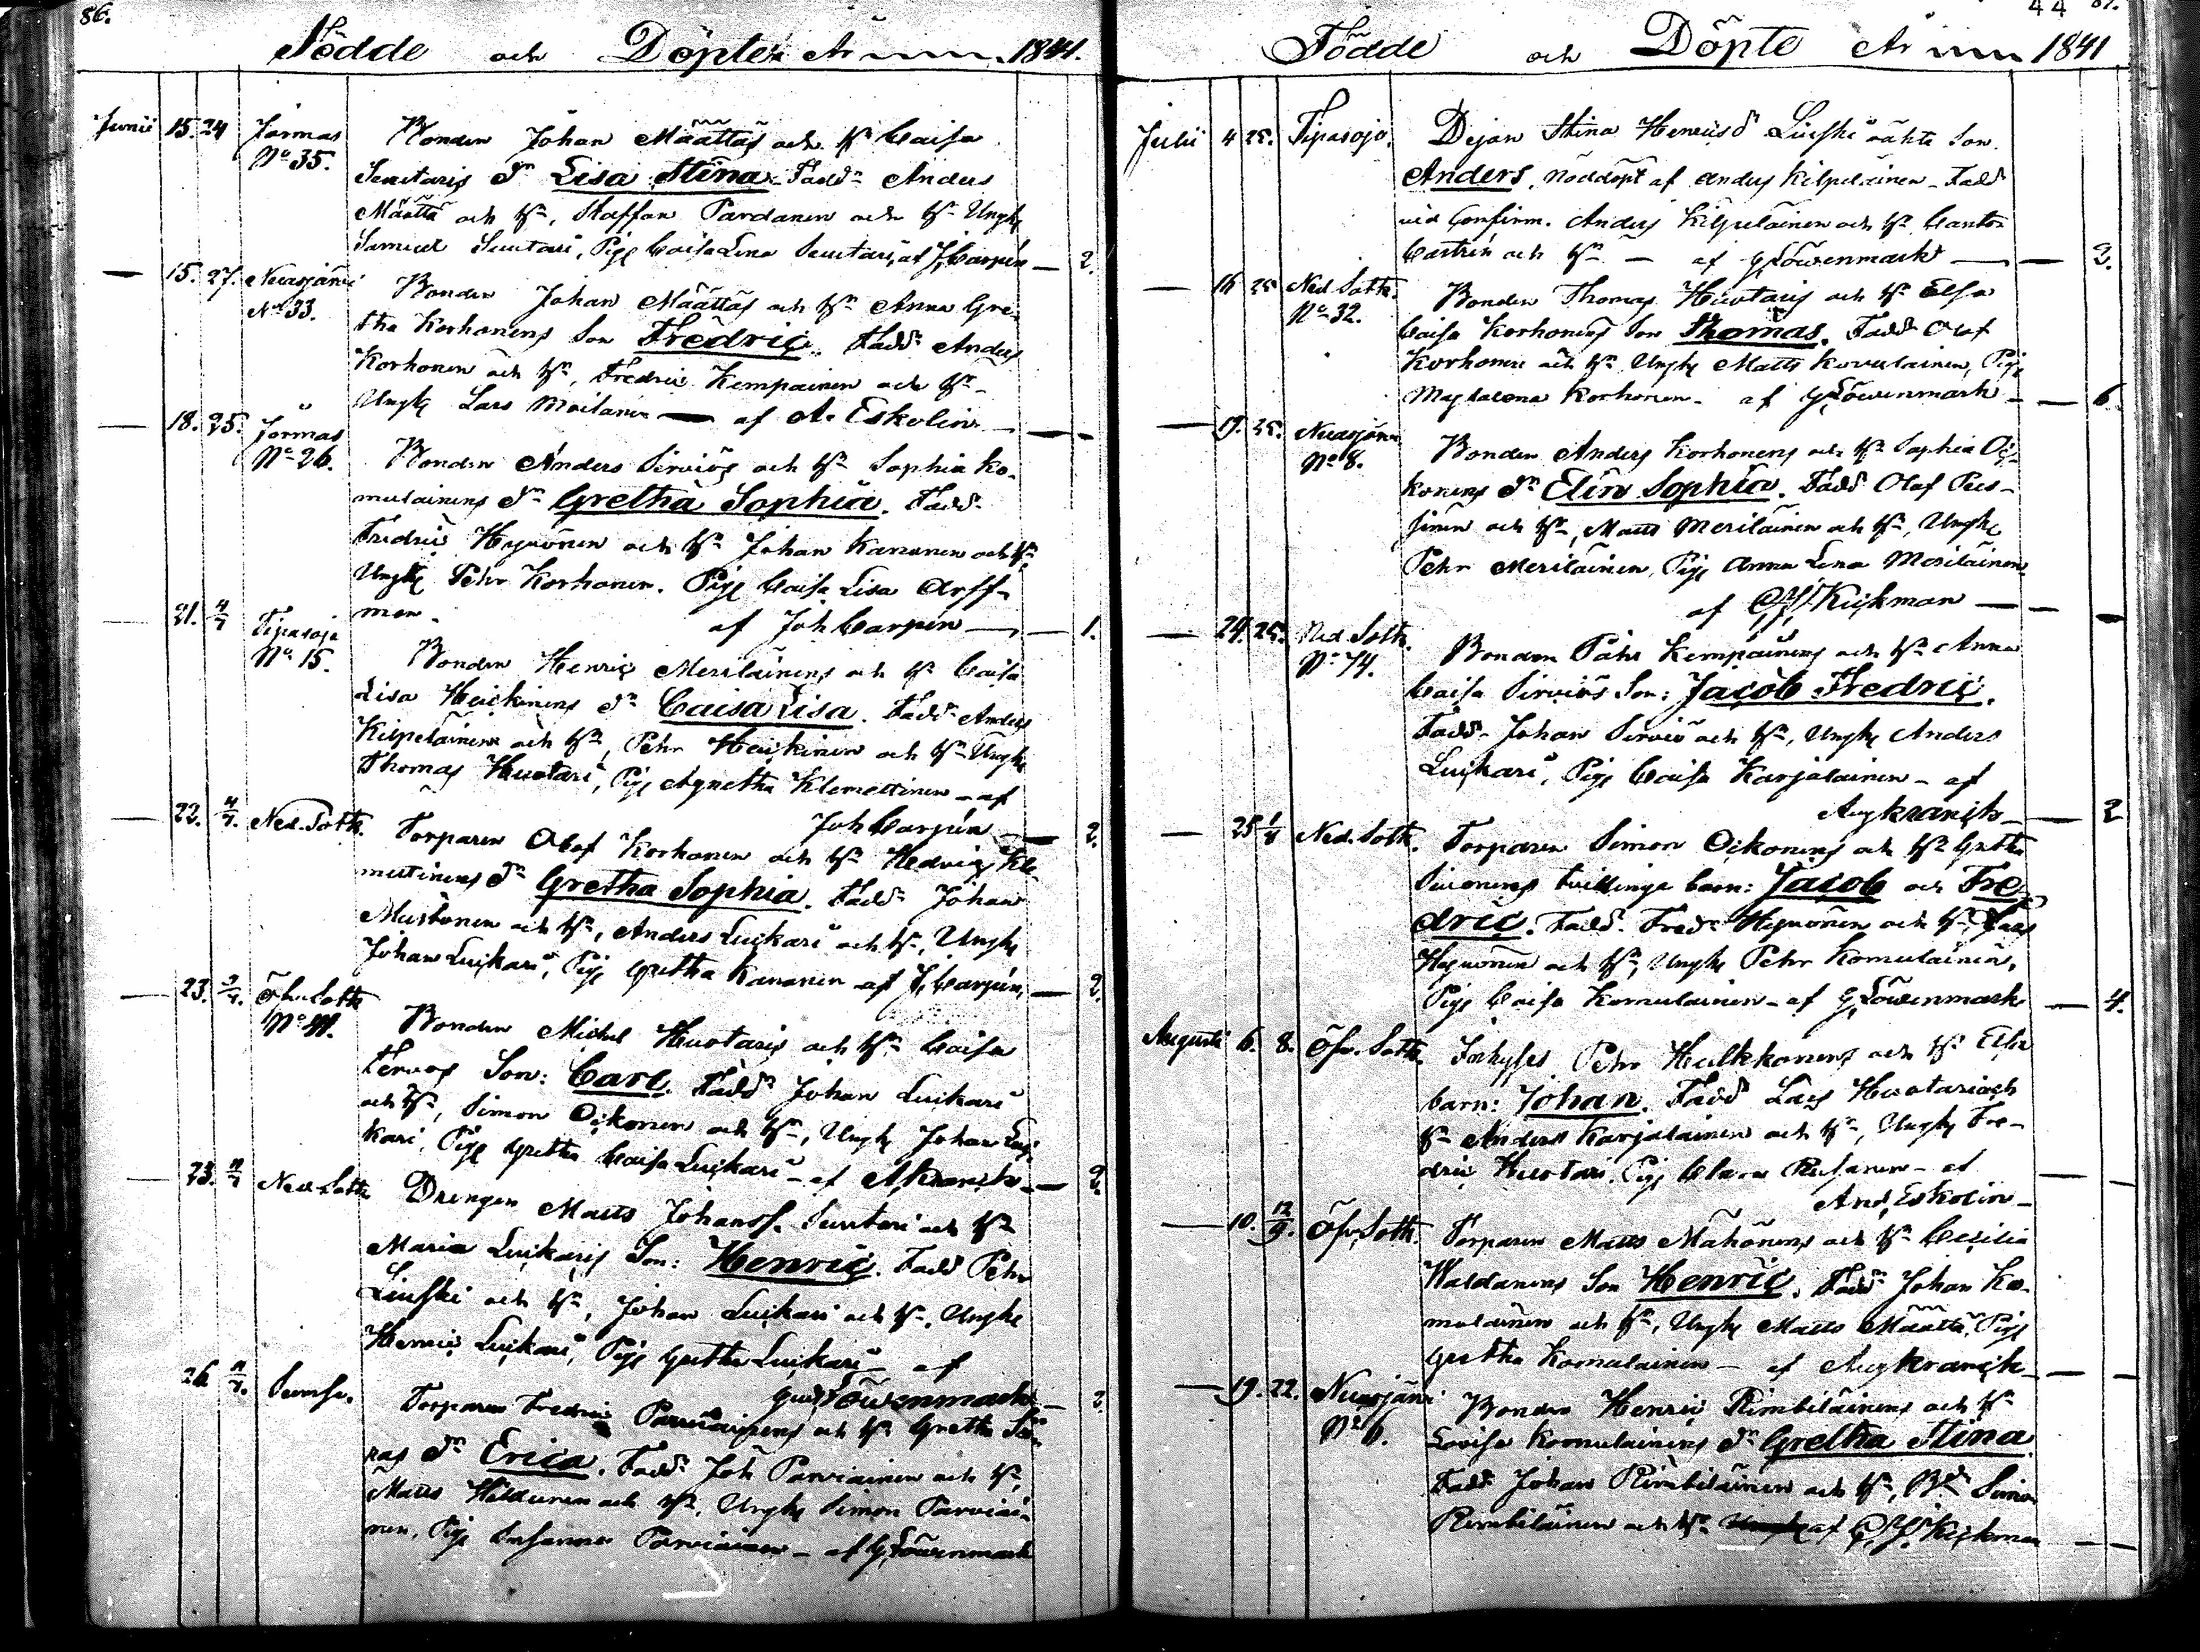 86.
Födde och Döpte År 1841.
Junii 15. 24 Jormas Bonden Johan Määttäs och H:u Caisa
No 35. Seuctaris Dr Lisa Stina. Fadd: Anders
Määttä och H:u, Staffan Pardanen och H:u Ungk
Samuel Seuctari, Pig Caisa Lena Seuctari, af J. Carpén — 2.
— 15. 27. Nuasjärvi Bonden Johan Määttäs och H:u Anna Gre-
No 33. tha Korhonens Son Fredric. Fadd: Anders
Korhonen och H:u, Fredric Kempainen och H:u
Ungk Lars Moilanen — af A. Eskolin — —
— 18. 25. Jormas Bonden Anders Sirviös och H:u Sophia Ko-
No 26. mulainens Dr Gretha Sophia. Fadd:
Fredric Hyvönen och H:u Johan Kananen och H:u
Ungk Pehr Korhonen. Pig Caisa Lisa Arff-
man. af Joh Carpén — 1.
— 21. 4/7 Tipasoja Bonden Henric Meriläinens och H:u Caisa
No 15. Lisa Heickinens Dr Caisa Lisa. Fadd: Anders
Kilpeläinen och H:u, Pehr Heickinen och H:u Ungk
Thomas Huotari, Pig Agnetha Klemettinen — af
Joh Carpén — 2.
— 22. 4/7. Ned. Sotk. Torparen Olof Korhonen och H:u Hedvig Kle-
mettinens Dr Gretha Sophia. Fadd: Johan
Mustonen och H:u, Anders Luickari och H:u, Ungk
Johan Luickari, Pig Gretha Kananen af J. Carpén — 2.
— 23. Öfv. Sotk Bonden Michel Huotaris och H:u Caisa
Tervos Son: Carl. Fadd: Johan Luickari
och H:u, Simon Oickonen och H:u, Ungk Johan Luic-
kari, Pig Gretha Caisa Luickari — af A. Kranck — 2.
— 23. Ned. Sotk Drengen Matts Johanss. Seuctari och H:u
Maria Luickaris Son: Henric. Fadd Pehr
Liuski och H:u, Johan Luickari och H:u, Ungk
Henric Luickari, Pig Gretha Luickari — af
Löwenmark — 2.
26 Sumsa. Torparen Fredric Parviainens och H:u Gretha
Dr Erica. Fadd: Joh Parviainen och H:u,
Matts Hildunen och H:u, Ungk Simon Parviai-
nen, Pig Susanna Parviainen — af G. Löwenmark
44 87.
Födde och Döpte År 1841
Julii 4 25. Tipasoja. Dejan Stina Henricsd:r Liuski oäkta Son
Anders, nöddöpt af Anders Kilpeläinen — Fadd
vid Confirm. Anders Kilpeläinen och H:u, Cantor
Castrén och H:u — af G. Löwenmark — — 2.
— 16 25 Ned Sotk. Bonden Thomas Huotaris och H:u Elsa
No 32. Caisa Korhonens Son Thomas. Fadd: Olof
Korhonen och H:u Ungk Matts Kovulainen, Pig
Magdalena Korhonen — af G. Löwenmark — — 6.
— 19. 25. Nuasjärvi Bonden Anders Korhonens och H:u Sophia Oic-
No 8. konens Dr Elin Sophia. Fadd Olof Pus-
sinen och H:u, Matts Meriläinen och H:u, Ungk
Pehr Meriläinen, Pig Anna Lena Meriläinen
af Kijkman — — —
— 24. 25. Ned Sotk. Bonden Påhr Kempainens och H:u Anna
No 74. Caisa Sirviös Son: Jacob Fredric.
Fadd: Johan Sirviö och H:u, Ungk Anders
Luickari, Pig Caisa Karjalainen — af
Aug Kranck — 2
— 25 Ned. Sotk. Torparen Simon Oickonens och H:u Gretha
Sivonens tvillinge barn: Jacob och Fre-
dric. Fadd. Fred: Hyvönen och H:u Lars
Hyvönen och H:u, Ungk Pehr Komulainen,
Pig Caisa Komulainen — af G. Löwenmark — 4.
Augusti 6. 8. Öfv. Sotk. Inhyses Pehr Hulkkonens och H:u Elsa
barn: Johan. Fadd Lars Huotari och
H:u Anders Karjalainen och H:u, Ungk Fre-
dric Huotari, Pig Clara Rusanen — af
And. Eskolin —
— 10. 12/9. Öfv. Sotk. Torparen Matts Mähönens och H:u Cecilia
Waldanens Son Henric. Fadd: Johan Ko-
mulainen och H:u, Ungk Matts Määttä, Pig
Gretha Komulainen — af Aug Kranck — —
— 19. 22. Nuasjärvi Bonden Henric Rimbiläinens och H:u
No 6. Lovisa Komulainens Dr Gretha Stina
Fadd Johan Rimbiläinen och H:u, Bd Simon
Rimbiläinen och H:u af Kijkman — —